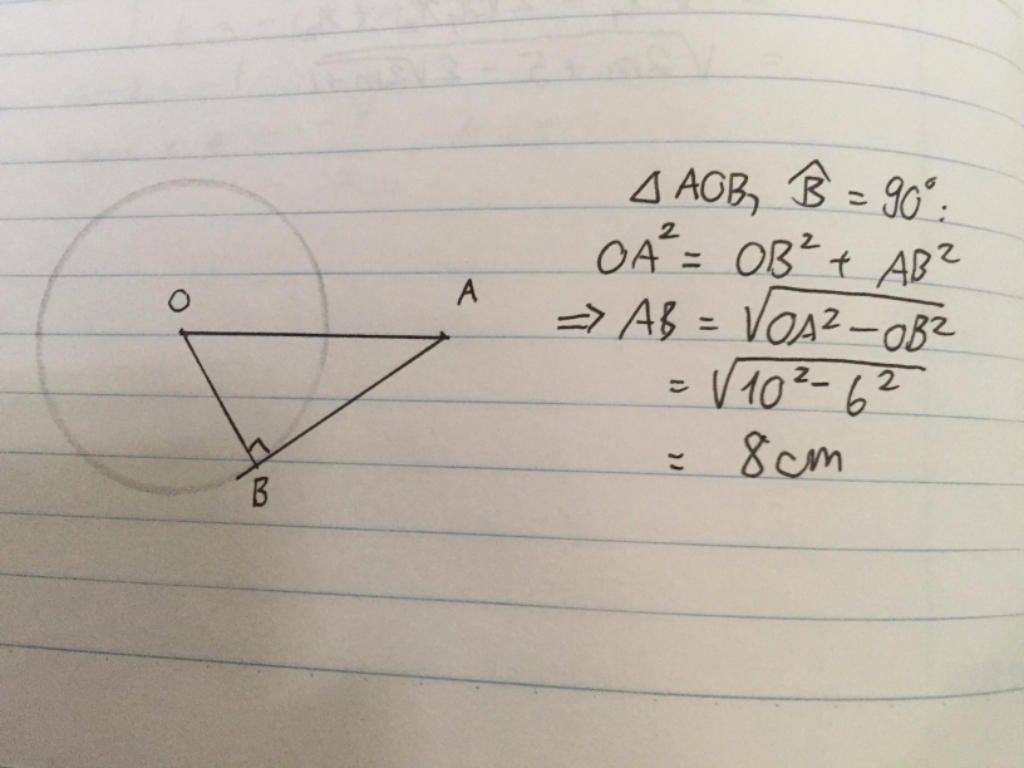 O
A
B
Δ AOB, B̂ = 90°:
OA² = OB² + AB²
⇒ AB = √OA² − OB²
= √10² − 6²
= 8cm